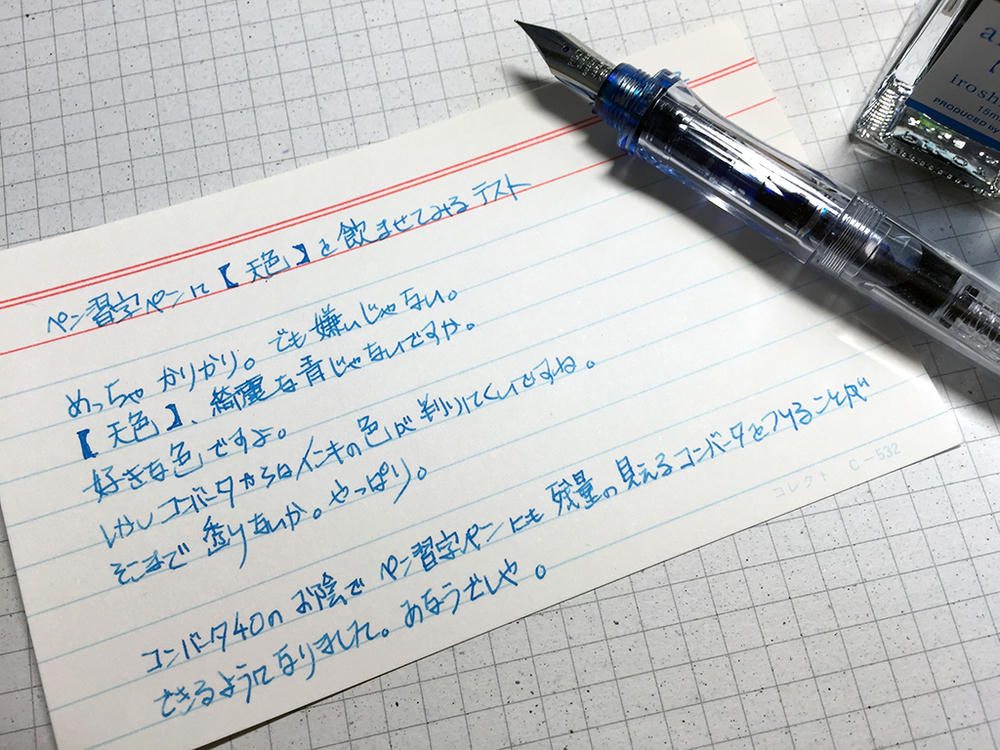 ペン習字ペンに【天色】を飲ませてみるテスト
めっちゃかりかり。でも嫌いじゃない。
【天色】、綺麗な青じゃないですか。
好きな色ですよ。
しかしコンバータからはインキの色が判りにくいですね。
そこまで透りないか。やっぱり。
コンバータ40のお陰でペン習字ペンにも残量の見えるコンバータをつけることが
できるようになりました。あなうれしや。
コレクト C-532
iros
15m
PRODUCED B